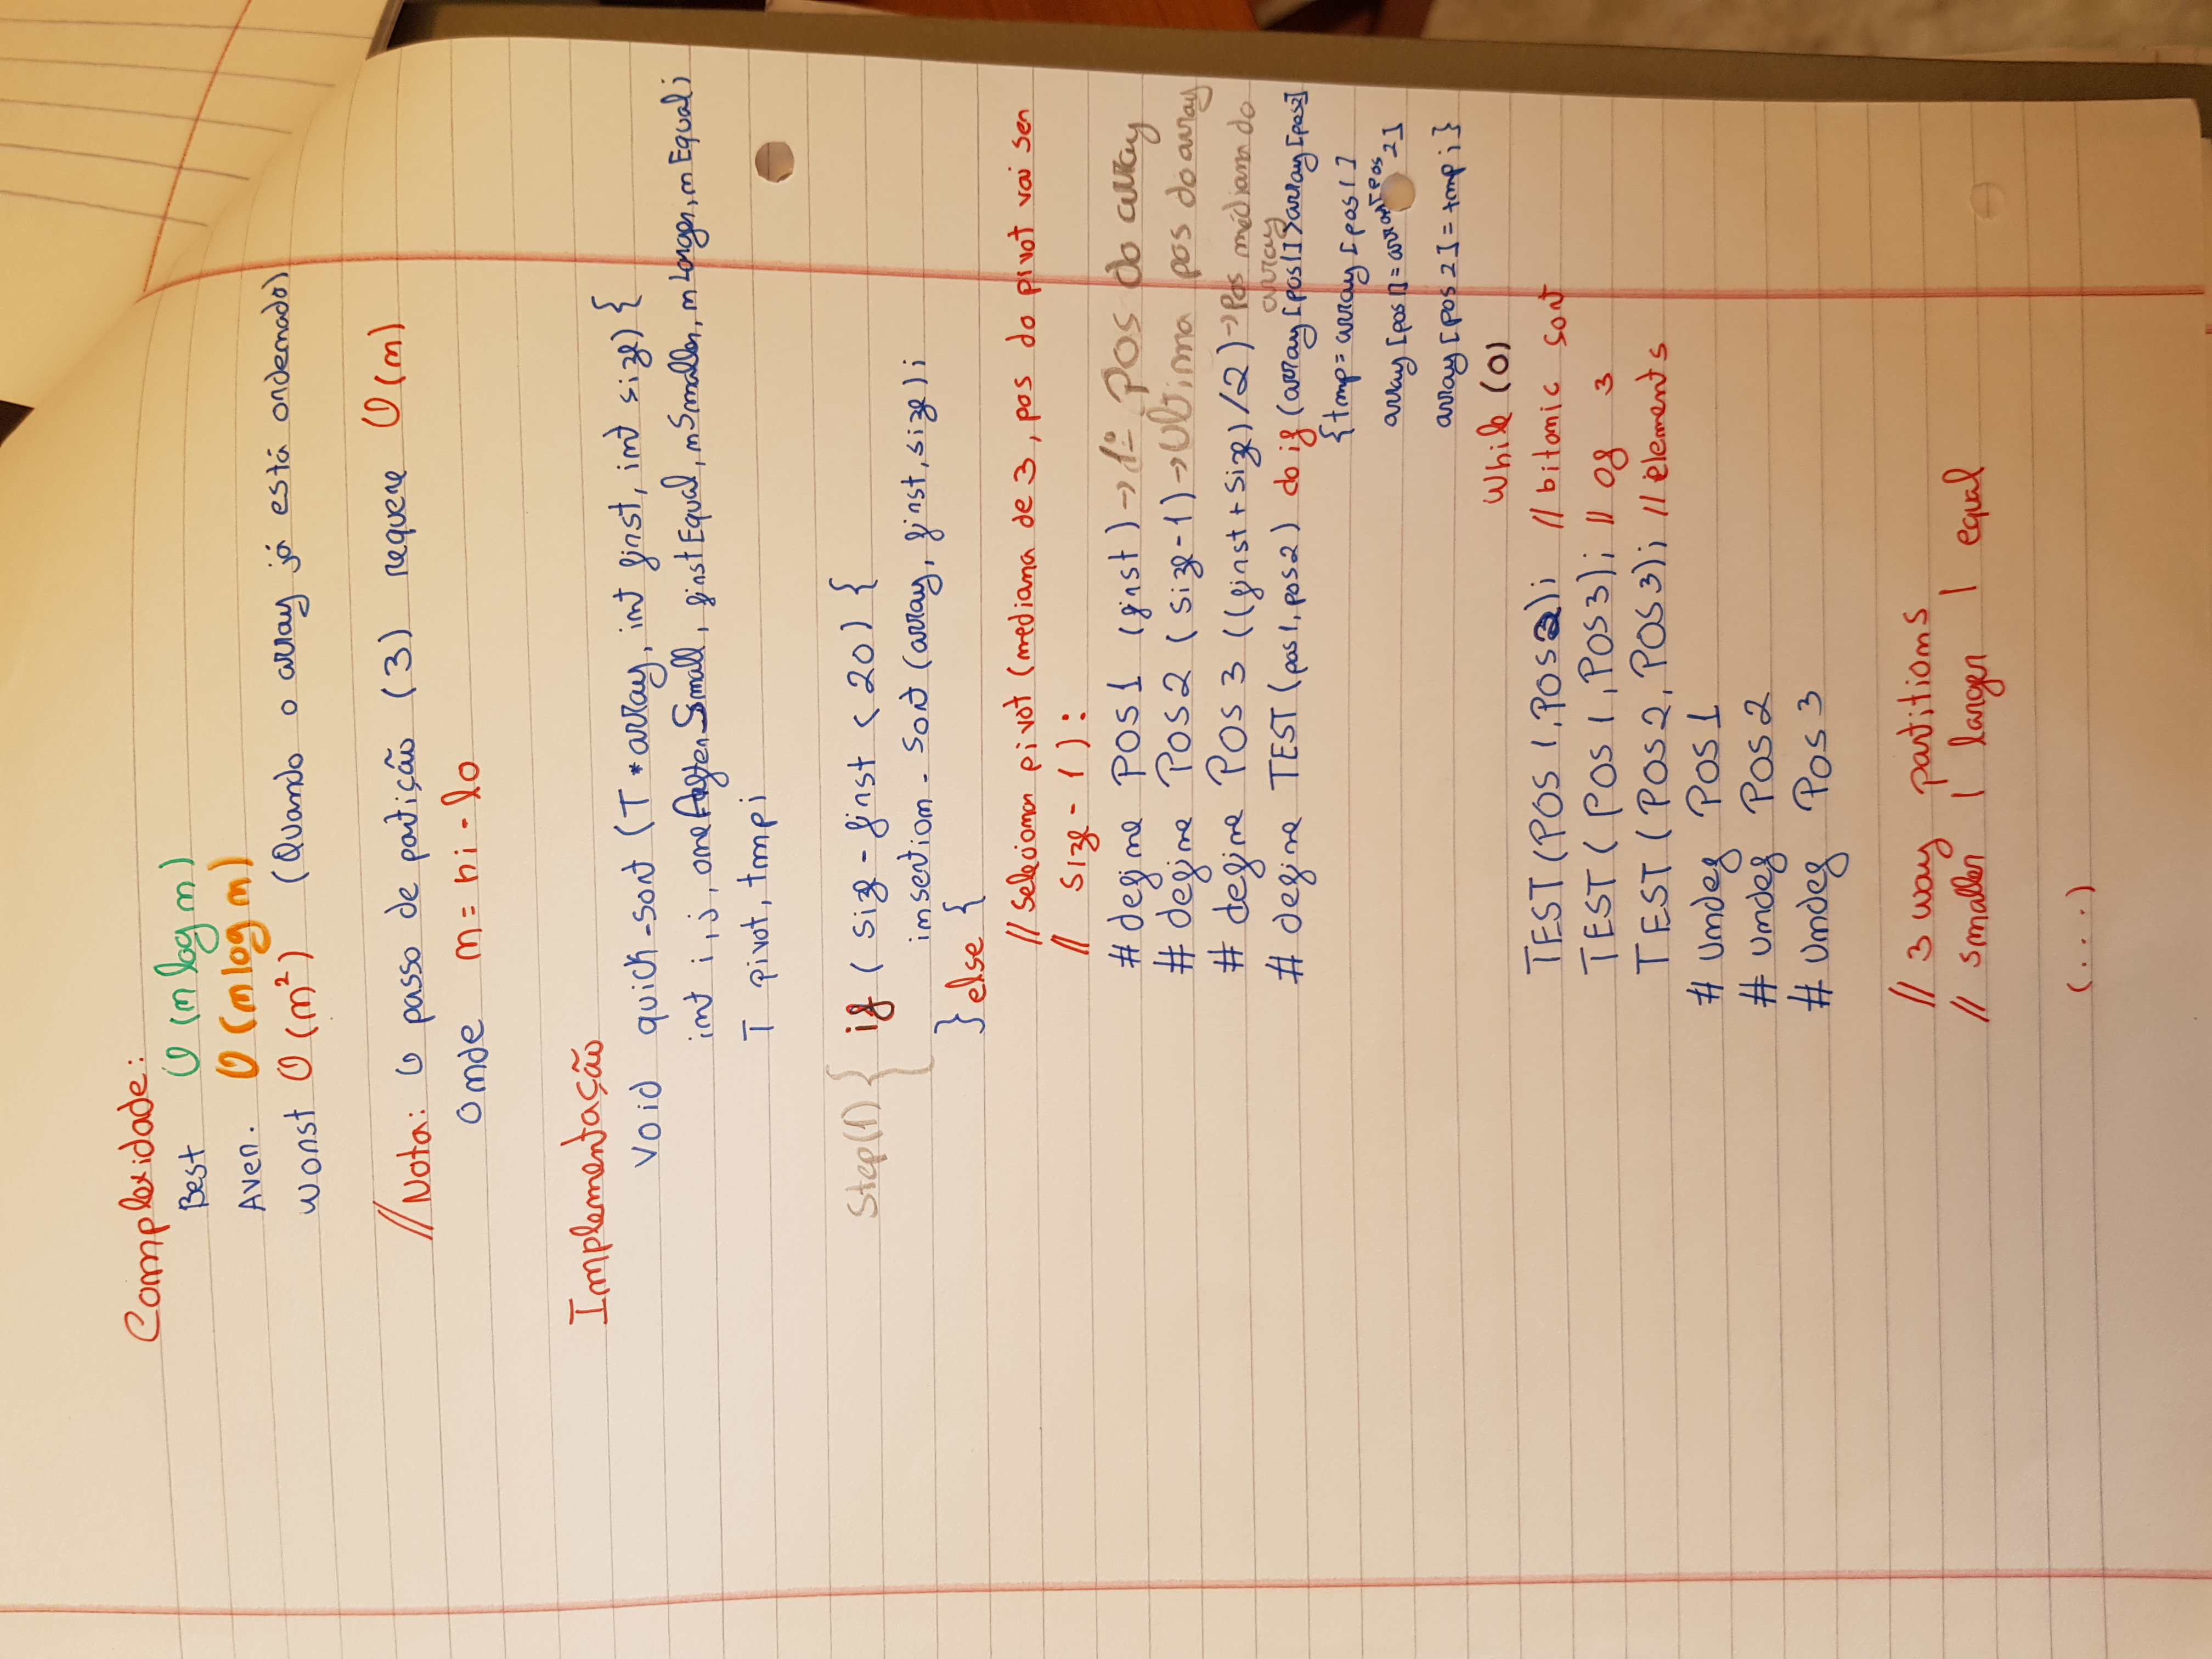 Complexidade:
Best O(n log n)
Aver. O(n log n)
Worst O(n²) (Quando o array já está ordenado)
//Nota: O passo de partição (3) requere O(n)
Onde n = hi - lo
Implementação
void quick-sort (T *array, int first, int size) {
int i, j, oneAfterSmall, firstEqual, nSmaller, nLarger, nEqual;
T pivot, tmp;
Step(1) { if ( size - first < 20) {
insertion_sort (array, first, size);
} else {
// Selecionar pivot (mediana de 3, pos do pivot vai ser
// size - 1 ) :
# define POS1 (first) → 1º POS do array
# define POS2 (size-1) → Ultima pos do array
# define POS 3 ((first + size) /2) → Pos médiana do
array
# define TEST (pos1, pos2) do if (array[pos1] > array[pos2]
{tmp = array [pos1]
array [pos1] = array[pos2]
array [pos 2] = tmp ; }
While (0)
TEST (POS 1, POS2); // bitonic sort
TEST ( POS 1, POS3); // of 3
TEST (POS2, POS3); // elements
# undef POS1
# undef POS2
# undef POS 3
// 3 way partitions
// smaller | larger | equal
(...)